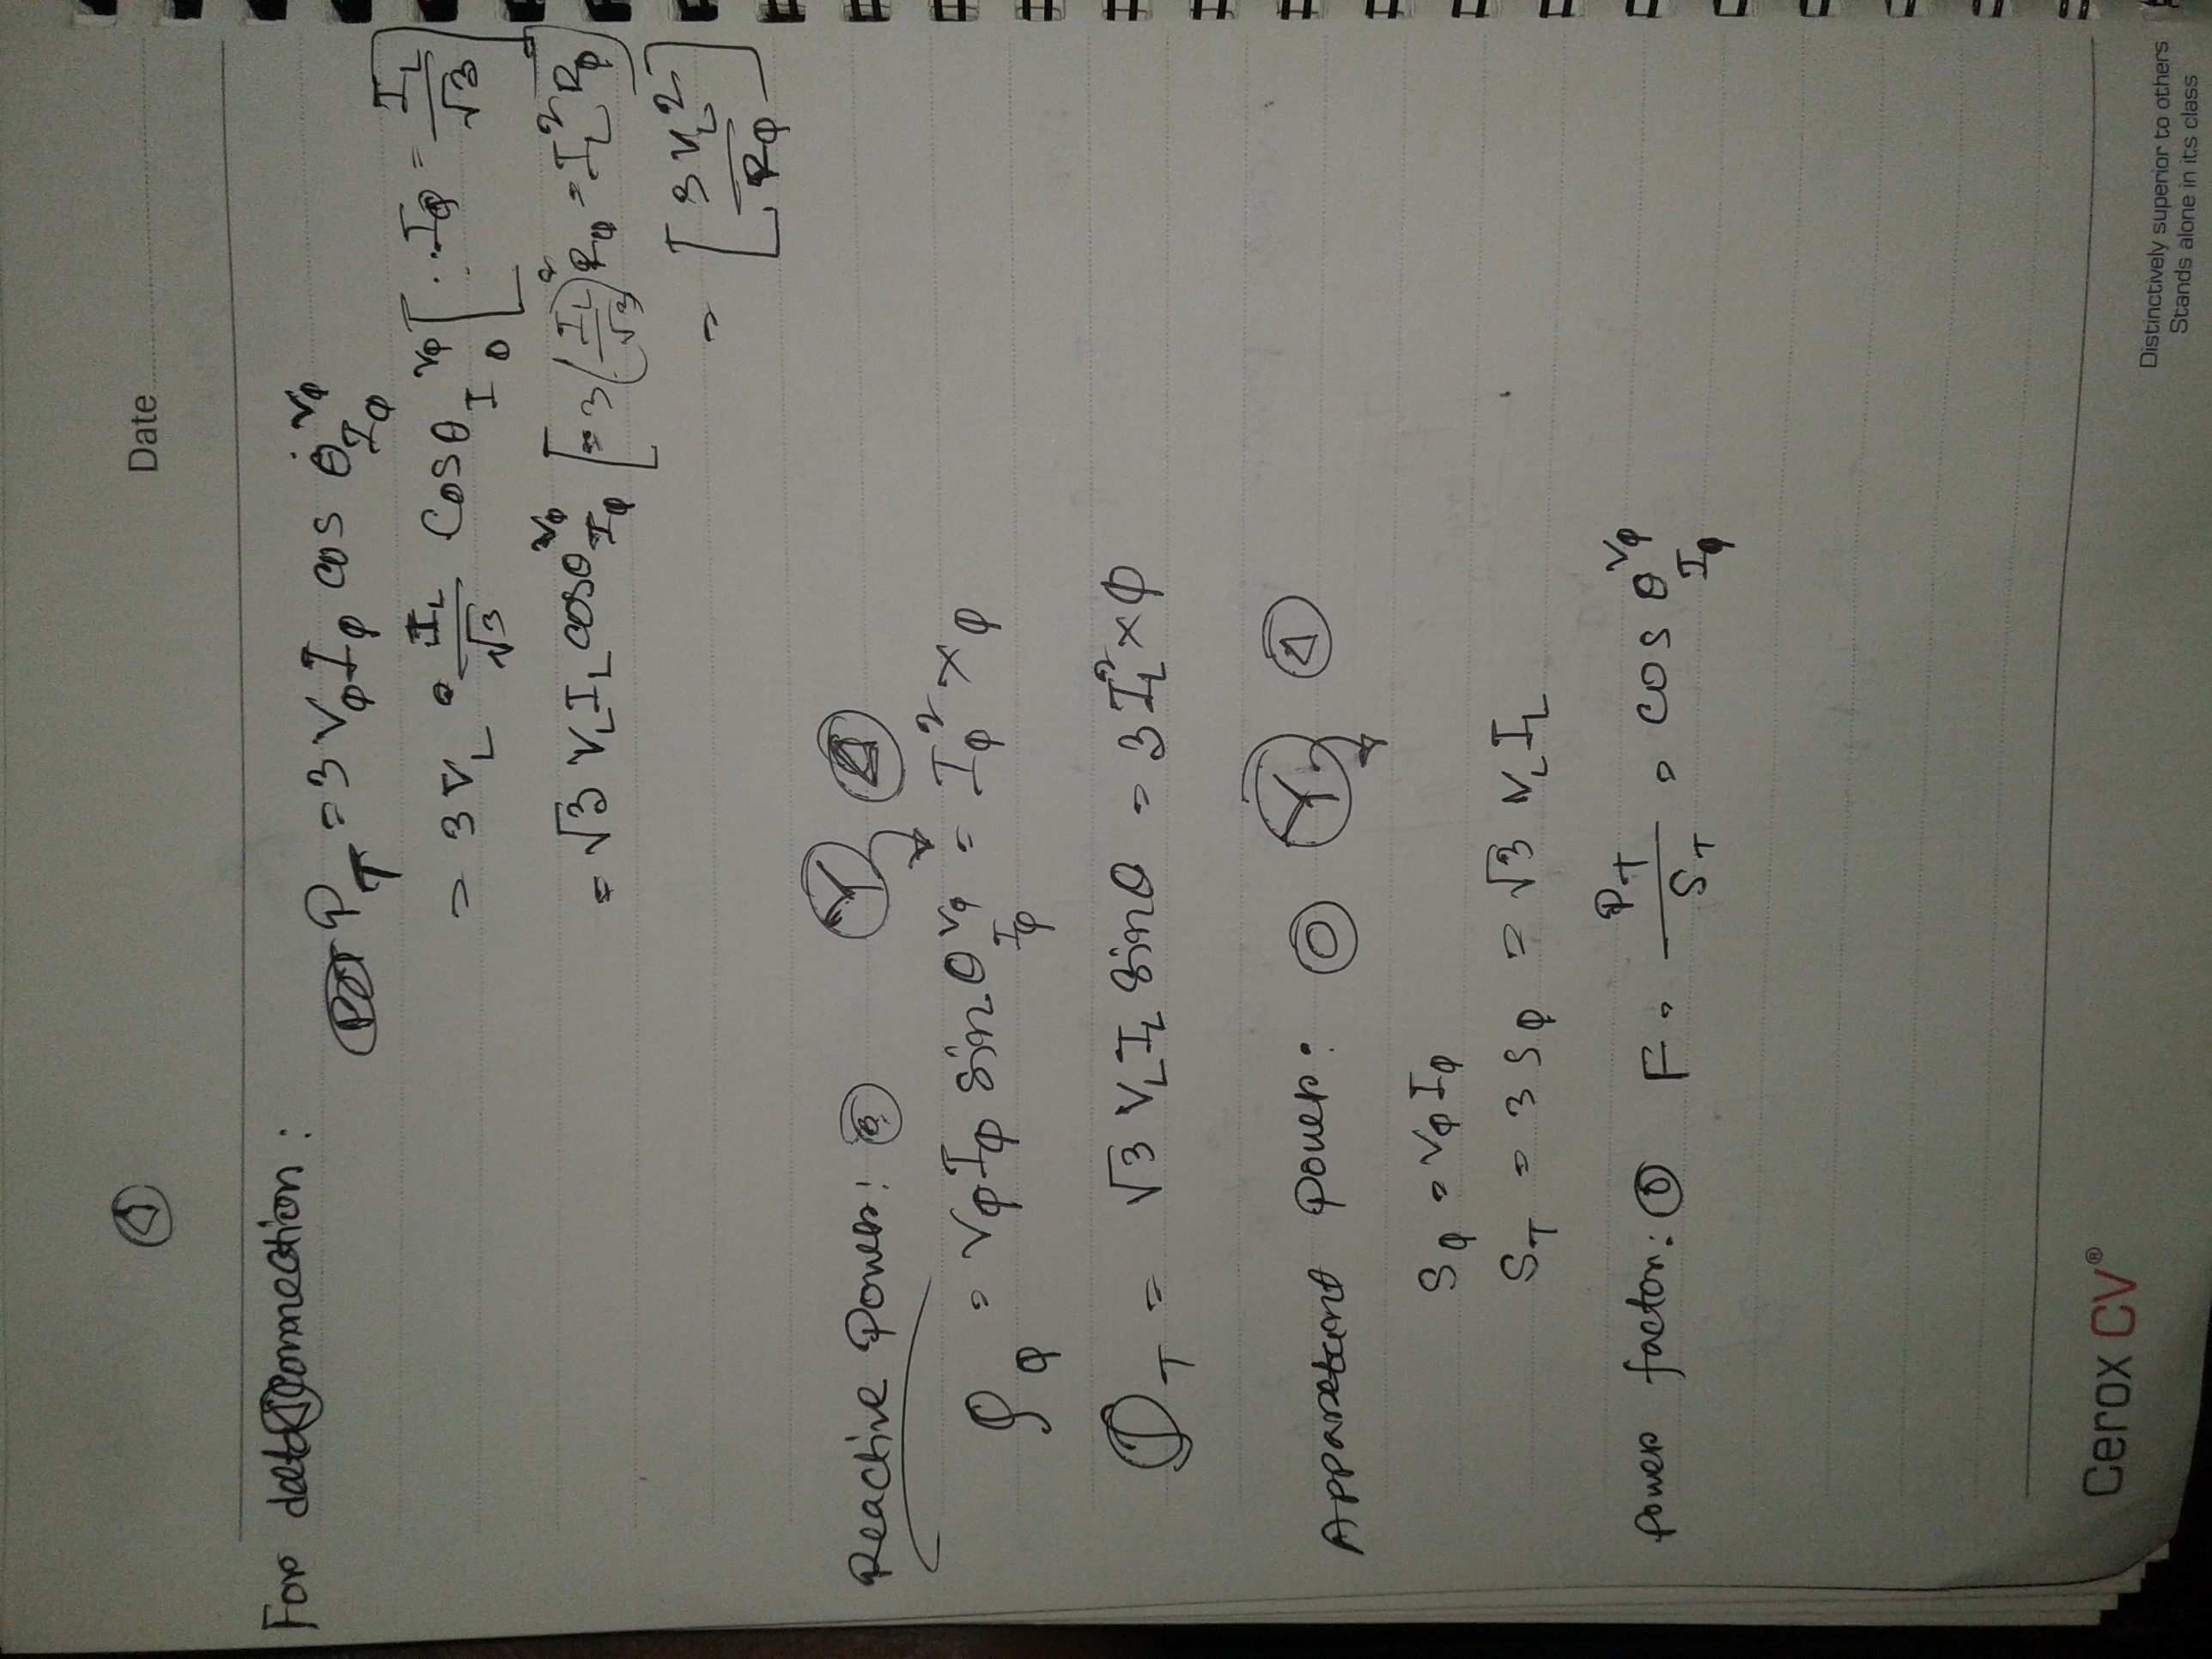 Δ
Date
For delta Δ connection:
P_T = 3 V_φ I_φ cos θ^{V_φ}_{I_φ}
= 3 V_L · I_L/√3 cos θ^{V_φ}_{I_φ} [∵ I_φ = I_L/√3]
= √3 V_L I_L cos θ^{V_φ}_{I_φ} [= 3 (I_L/√3)^2 R_φ = I_L^2 R_φ]
= [3 V_L^2 / R_φ]
Reactive Power: Y Δ
Q_φ = V_φ I_φ sin θ^{V_φ}_{I_φ} = I_φ^2 X_φ
Q_T = √3 V_L I_L sin θ = 3 I_L^2 X φ
Power: Y Δ
S_φ = V_φ I_φ
S_T = 3 S_φ = √3 V_L I_L
Power factor: F = P_T / S_T = cos θ^{V_φ}_{I_φ}
Cerox CV®
Distinctively superior to others
Stands alone in its class